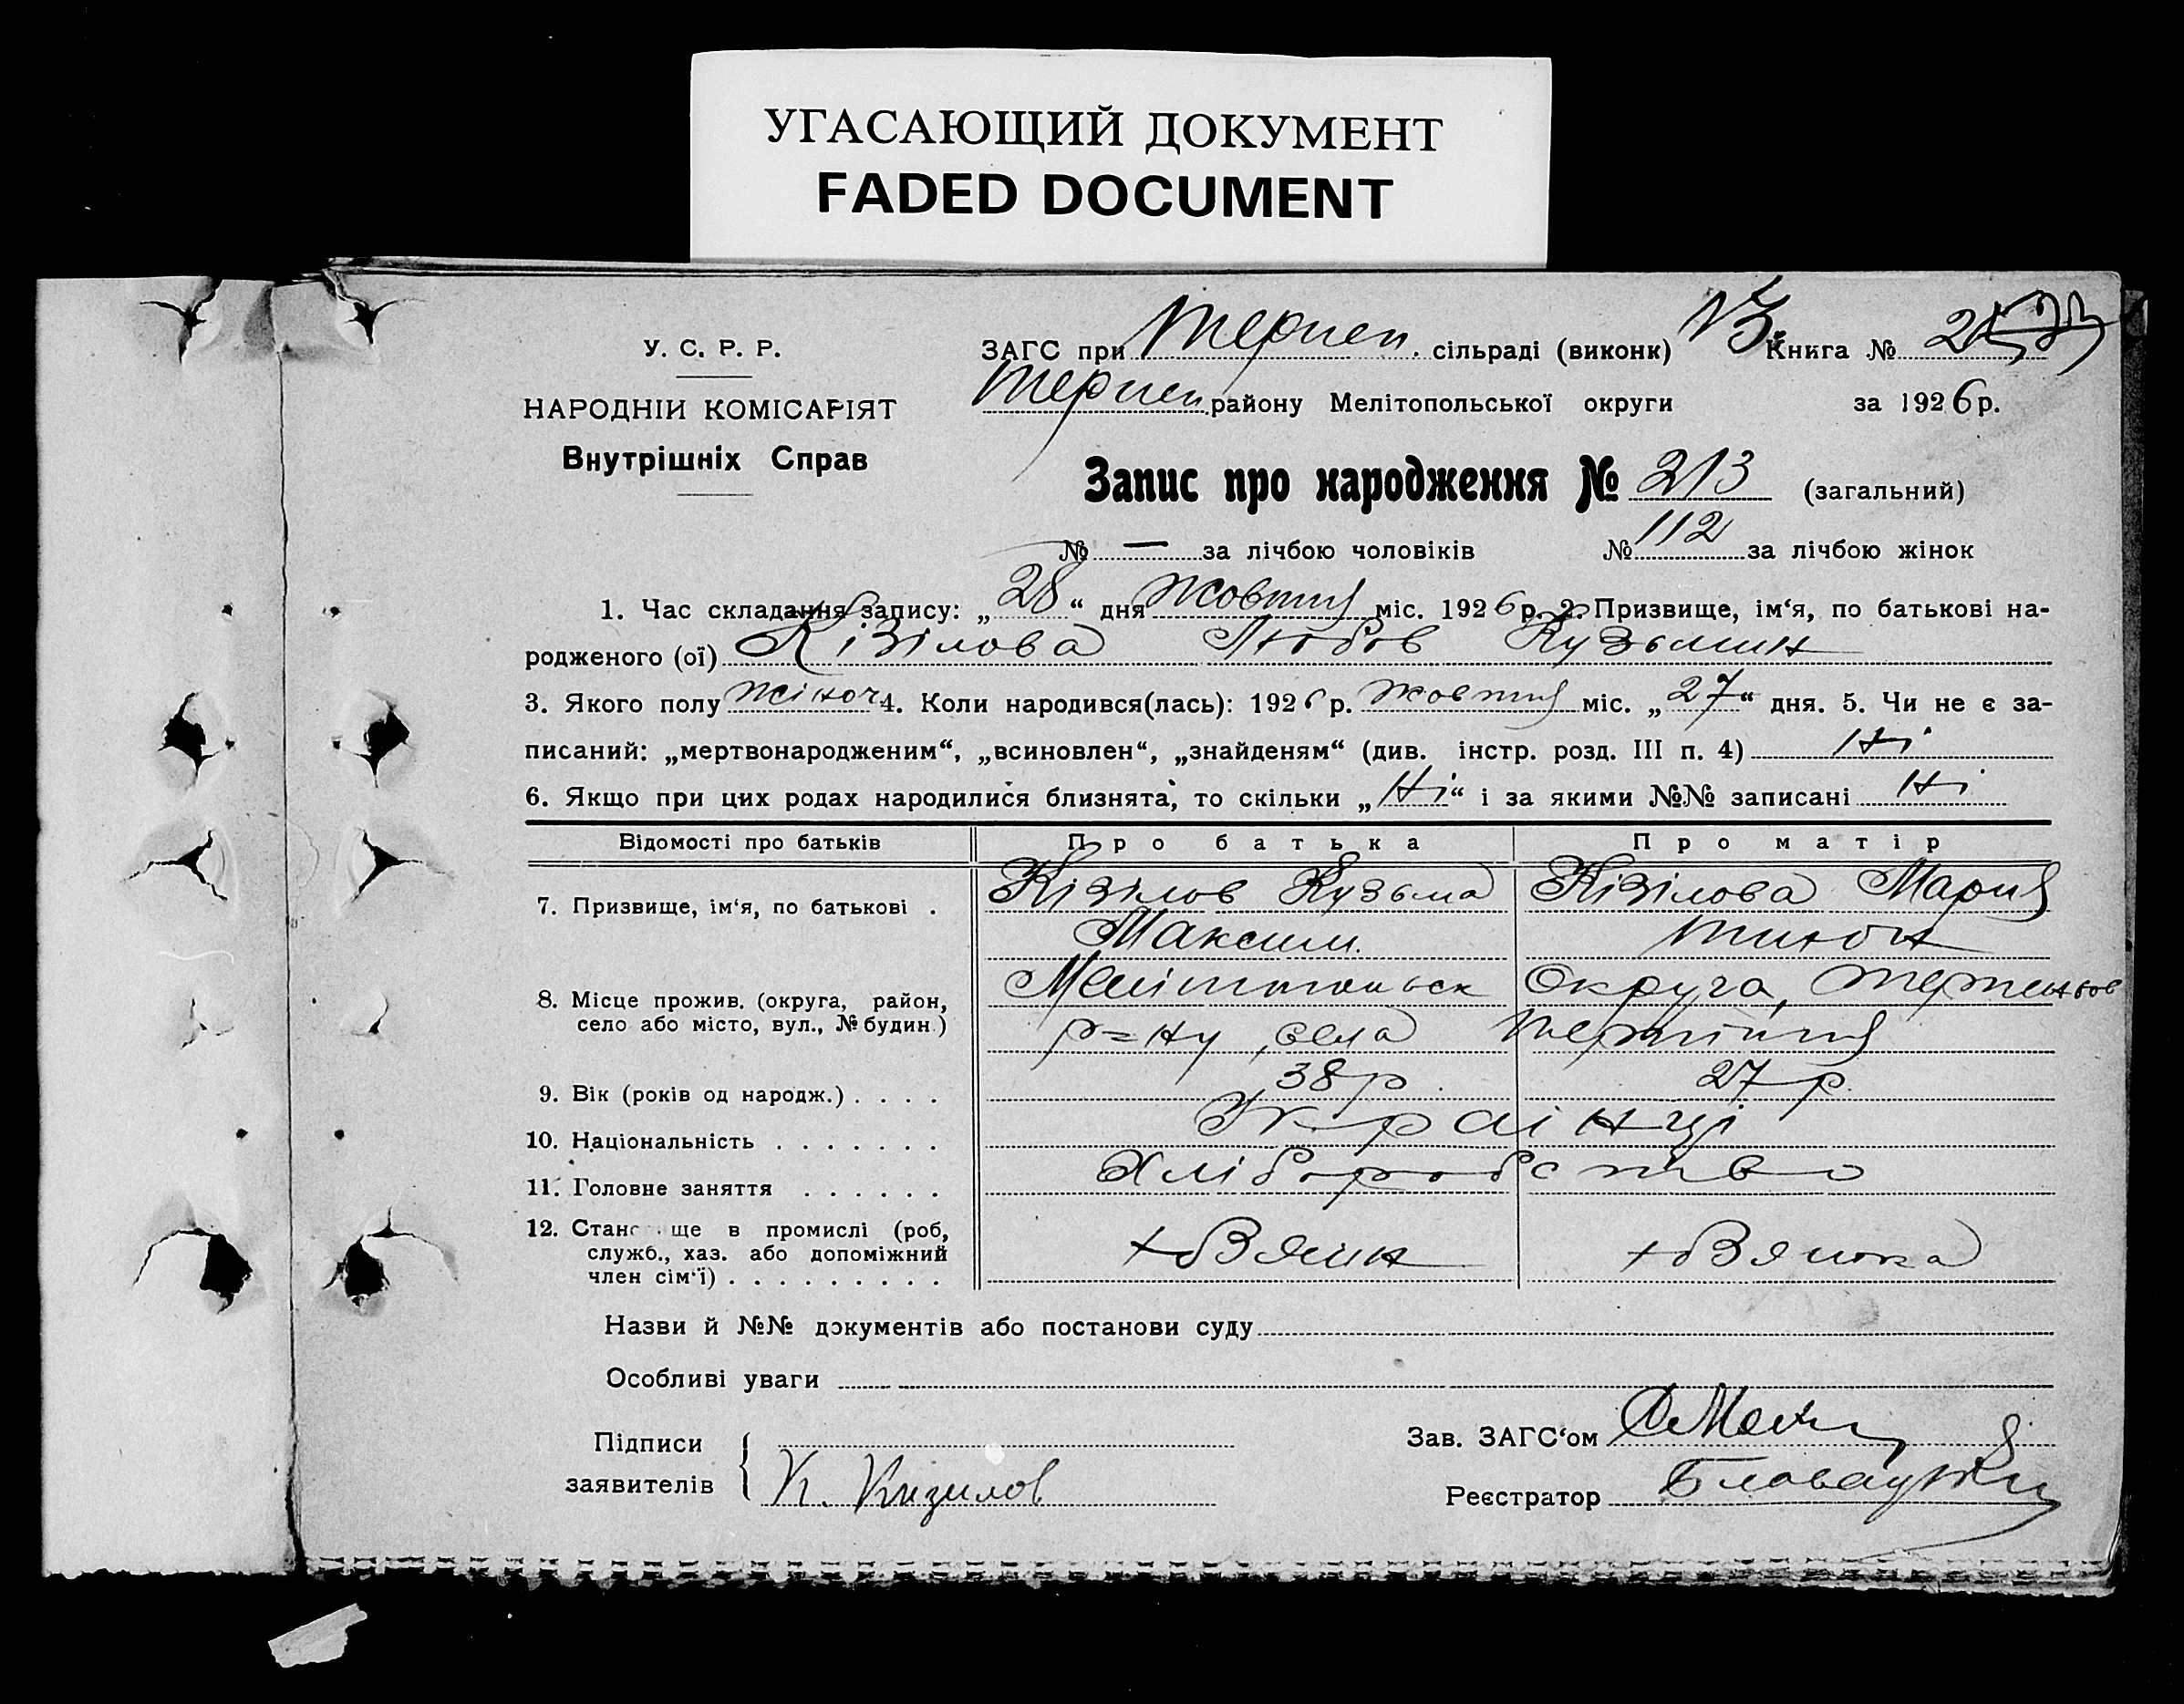 УГАСАЮЩИЙ ДОКУМЕНТ
FADED DOCUMENT
У. С. Р. Р.
НАРОДНІЙ КОМІСАРІЯТ
Внутрішніх Справ
ЗАГС при Терпен. сільраді (виконк) Книга №
Терпен району Мелітопольської округи за 1926 р.
Запис про народження № 213 (загальний)
№ — за лічбою чоловіків № 112 за лічбою жінок
1. Час складання запису: „28“ дня жовтня міс. 1926 р. 2. Призвище, ім‘я, по батькові на-
родженого (ої) Кізілова Любов Кузьмин
3. Якого полу жіноч 4. Коли народився(лась): 1926 р. жовтня міс. „27“ дня. 5. Чи не є за-
писаний: „мертвонародженим“, „всиновлен“, „знайденям“ (див. інстр. розд. III п. 4) Ні
6. Якщо при цих родах народилися близнята, то скільки „Ні“ і за якими №№ записані Ні
Відомості про батьків Про батька Про матір
7. Призвище, ім‘я, по батькові . Кізілов Кузьма Кізілова Мария
Максим. Тихон
8. Місце прожив. (округа, район, Мелітопольск Округа,
село або місто, вул., № будин.) р=ну, села Терпіння
9. Вік (років од народж.) . . . . 38 р. 27 р.
10. Національність . . . . . . . Українці
11. Головне заняття . . . . . . Хліборобство
12. Стано ще в промислі (роб,
служб., хаз. або допоміжний
член сім‘ї) . . . . . . . . .
Назви й №№ документів або постанови суду
Особливі уваги
Підписи
заявителів К. Кизилов
Зав. ЗАГС‘ом
Реєстратор